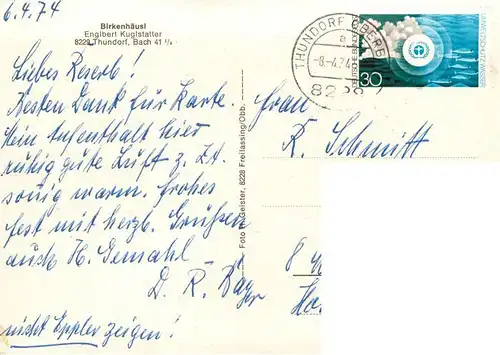 6.4.74
Birkenhäusl
Englbert Kuglstatter
8229 Thundorf, Bach 41 1/3
Liebes Reserl!
Besten Dank für Karte.
Mein Aufenthalt hier
ruhig gute Luft z. Zt.
sonig warm. Frohes
Fest mit herzl. Grüßen
auch H. Gemahl
D. R.
nicht zeigen!
Foto H. Geister, 8228 Freilassing/Obb.
THUNDORF OBERB
a
-8.-4.74
822
DEUTSCHE BUNDESPOST
30
UMWELTSCHUTZ WASSER
Frau
R. Schmitt
8